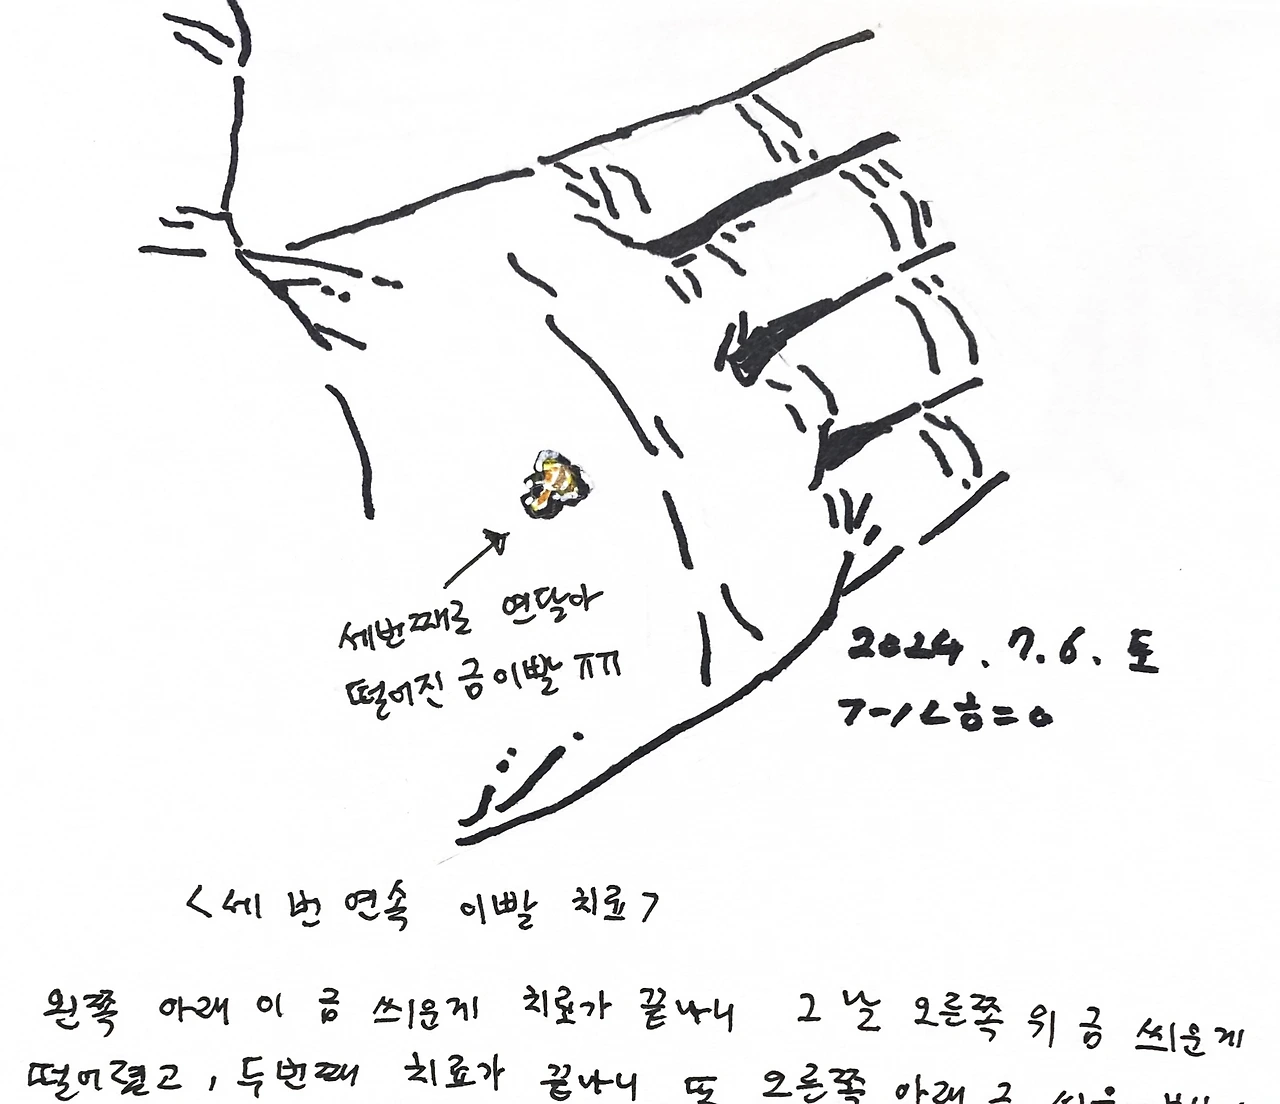 세번째로 연달아
떨어진 금이빨 ㅠㅠ
2024. 7. 6. 토
<세 번 연속 이빨 치료>
왼쪽 아래 이 금 씌운게 치료가 끝나니 그 날 오른쪽 위 금 씌운게
떨어졌고, 두번째 치료가 끝나니 또 오른쪽 아래 금